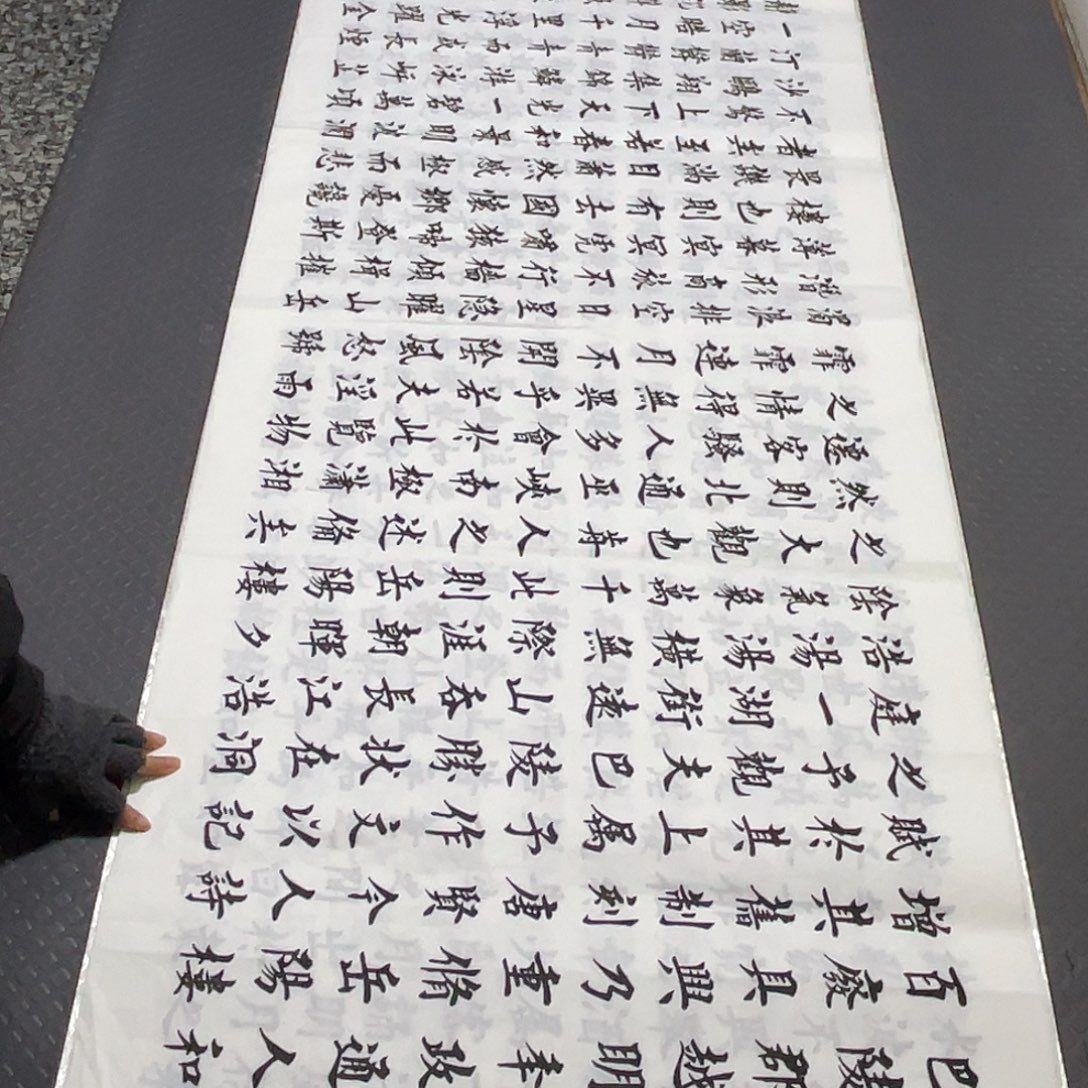 巴陵郡越明年政通人和
百廢具興乃重脩岳陽樓
增其舊制刻唐賢今人詩
賦於其上屬予作文以記
之予觀夫巴陵勝狀在洞
庭一湖銜遠山吞長江浩
浩湯湯橫無際涯朝暉夕
陰氣象萬千此則岳陽樓
之大觀也前人之述備矣
然則北通巫峽南極瀟湘
遷客騷人多會於此覽物
之情得無異乎若夫淫雨
霏霏連月不開陰風怒號
濁浪排空日星隱曜山岳
潛形商旅不行檣傾楫摧
薄暮冥冥虎嘯猿啼登斯
樓也則有去國懷鄉憂讒
畏譏滿目蕭然感極而悲
者矣至若春和景明波瀾
不驚上下天光一碧萬頃
沙鷗翔集錦鱗游泳岸芷
汀蘭郁郁青青而或長煙
一空皓月千里浮光躍金